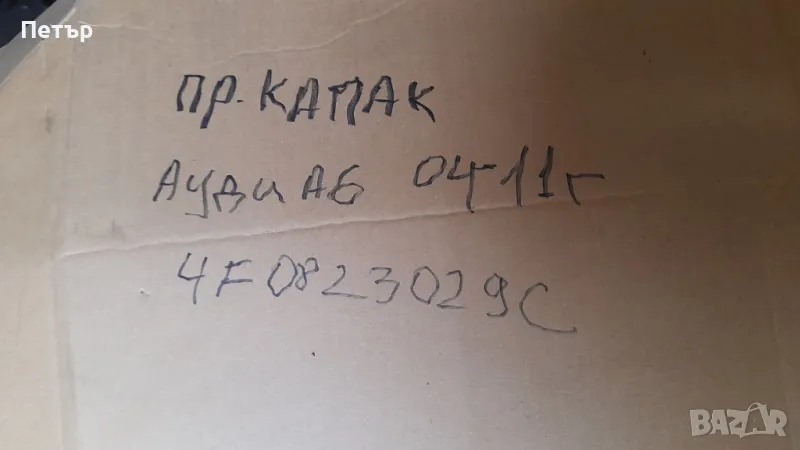 Петър
ПР. КАПАК
АУДИ А6 04-11г
4F0823029C
BAZAR